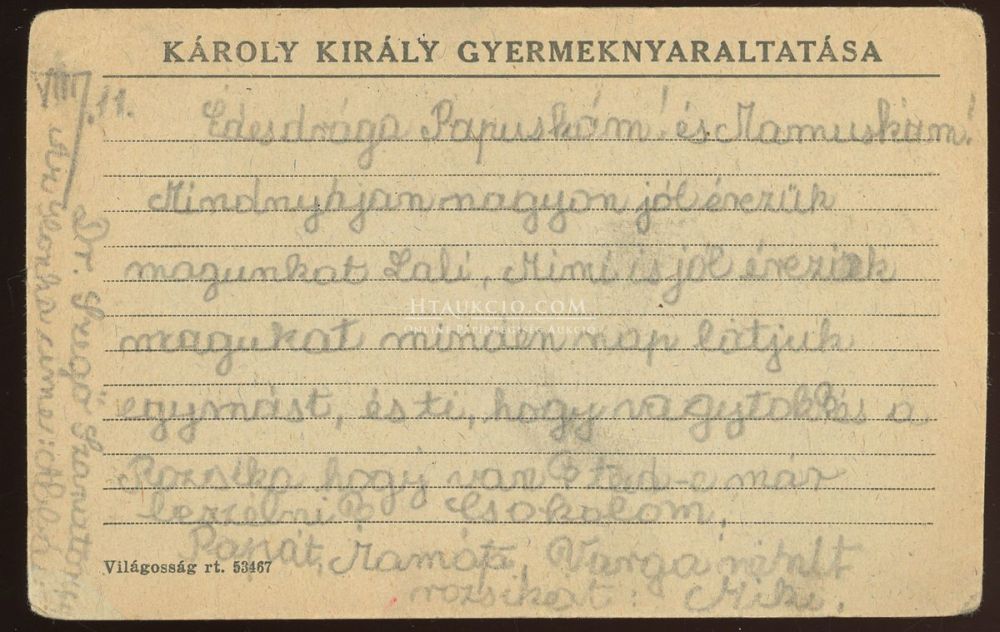 KÁROLY KIRÁLY GYERMEKNYARALTATÁSA
11.
Édesdrága Papuskám! és Mamuskám!
Mindnyhjan nagyon jól érezük
magunkat Lali, Mimi is jól érezik
magukat minden nap látjuk
egymást, és ti, hogy vagytok? és a
Rozsika hogy van? tud-e már
beszélni? Csokolom,
Papát, Mamát, Varga nénit
rozsikat: Miki.
Dr. Szegő
HTAUKCIO.COM
ONLINE PAPÍRRÉGISÉG AUKCIÓ
Világosság rt. 53467